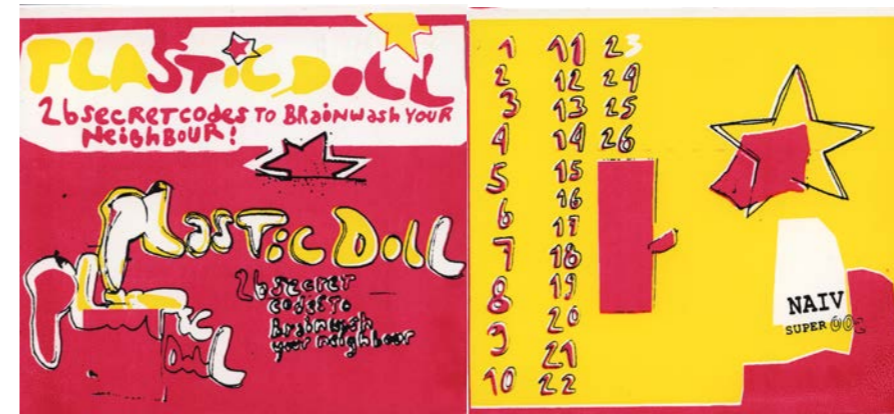 PLASTiC DOLL
26 secret codes to Brainwash your
Neighbour!
Plastic Doll
Plastic
Doll
26 secret
codes to
brainwash
your neighbour
1
2
3
4
5
6
7
8
9
10
11
12
13
14
15
16
17
18
19
20
21
22
23
24
25
26
NAIV
SUPER 002